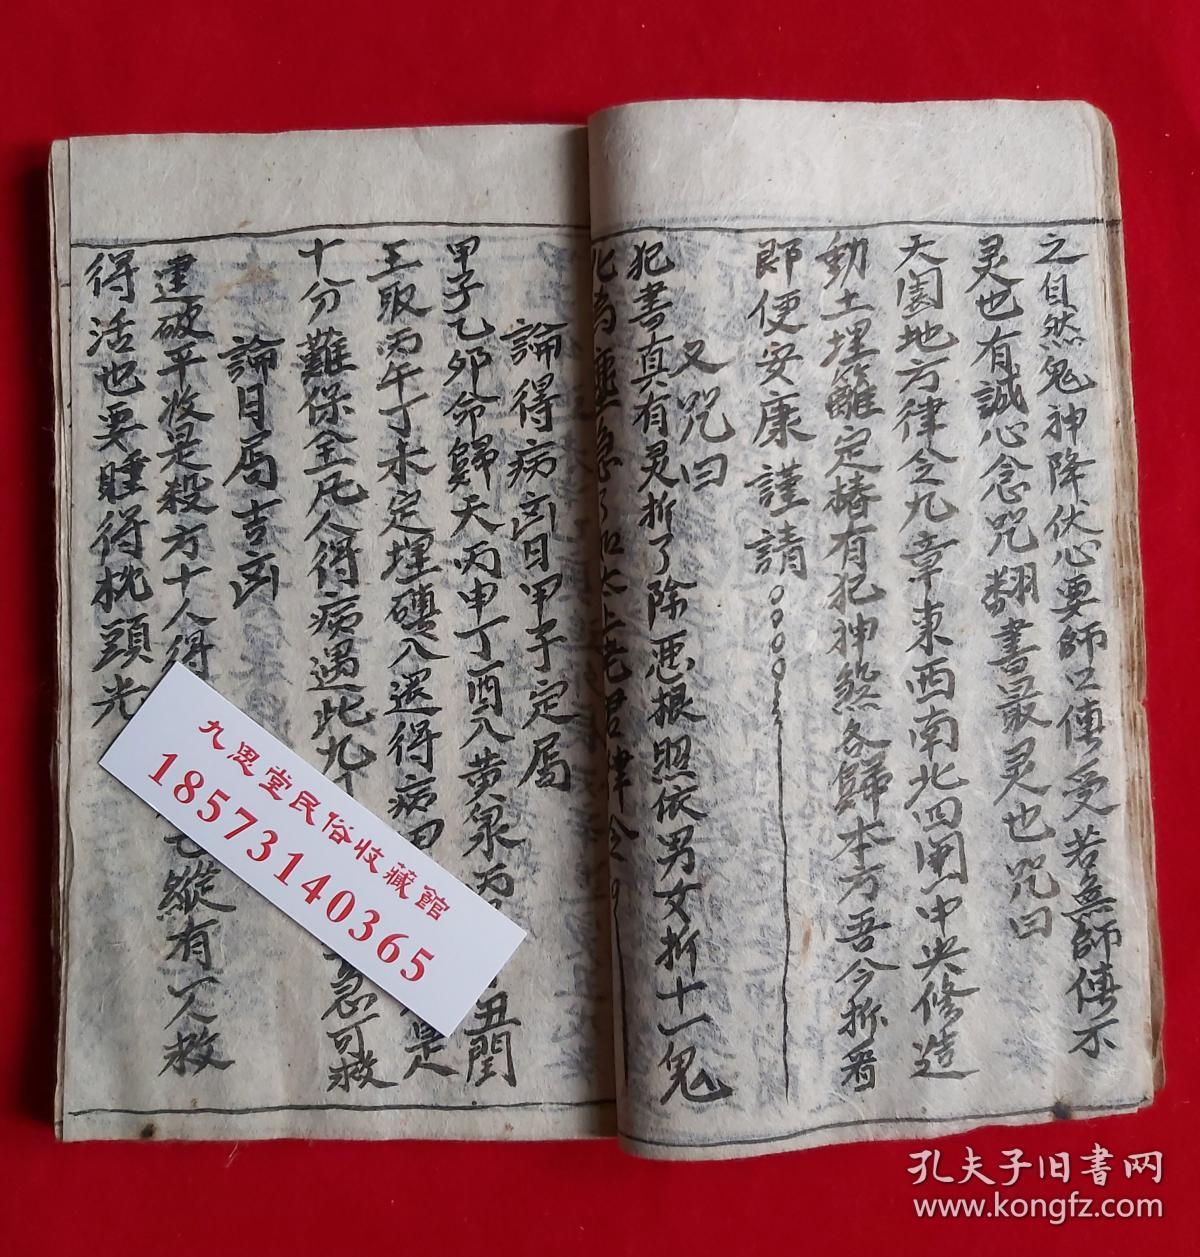 之自然鬼神降伏心要師口傳受若無師傳不
灵也有誠心念咒翻書最灵也咒曰
天園地方律令九章東西南北四周中央修造
動土埋籬定樁有犯神煞各歸本方吾今拆看
即便安康謹請
又咒曰
犯書真有灵折了除惡根照依男女折十一鬼
化為塵急 太上老君律令
論得病凶日甲子定局
甲子乙卯命歸天丙申丁酉入黃泉丙 丑閏
王取丙午丁未定埋磚八還得病 是
十分難保全凡人得病遇此九 急可救
論日局吉凶
建破平收是殺方十人得 亡縱有一人救
得活也要睡得枕頭光
九思堂民俗收藏館
18573140365
孔夫子旧書网
www.kongfz.com